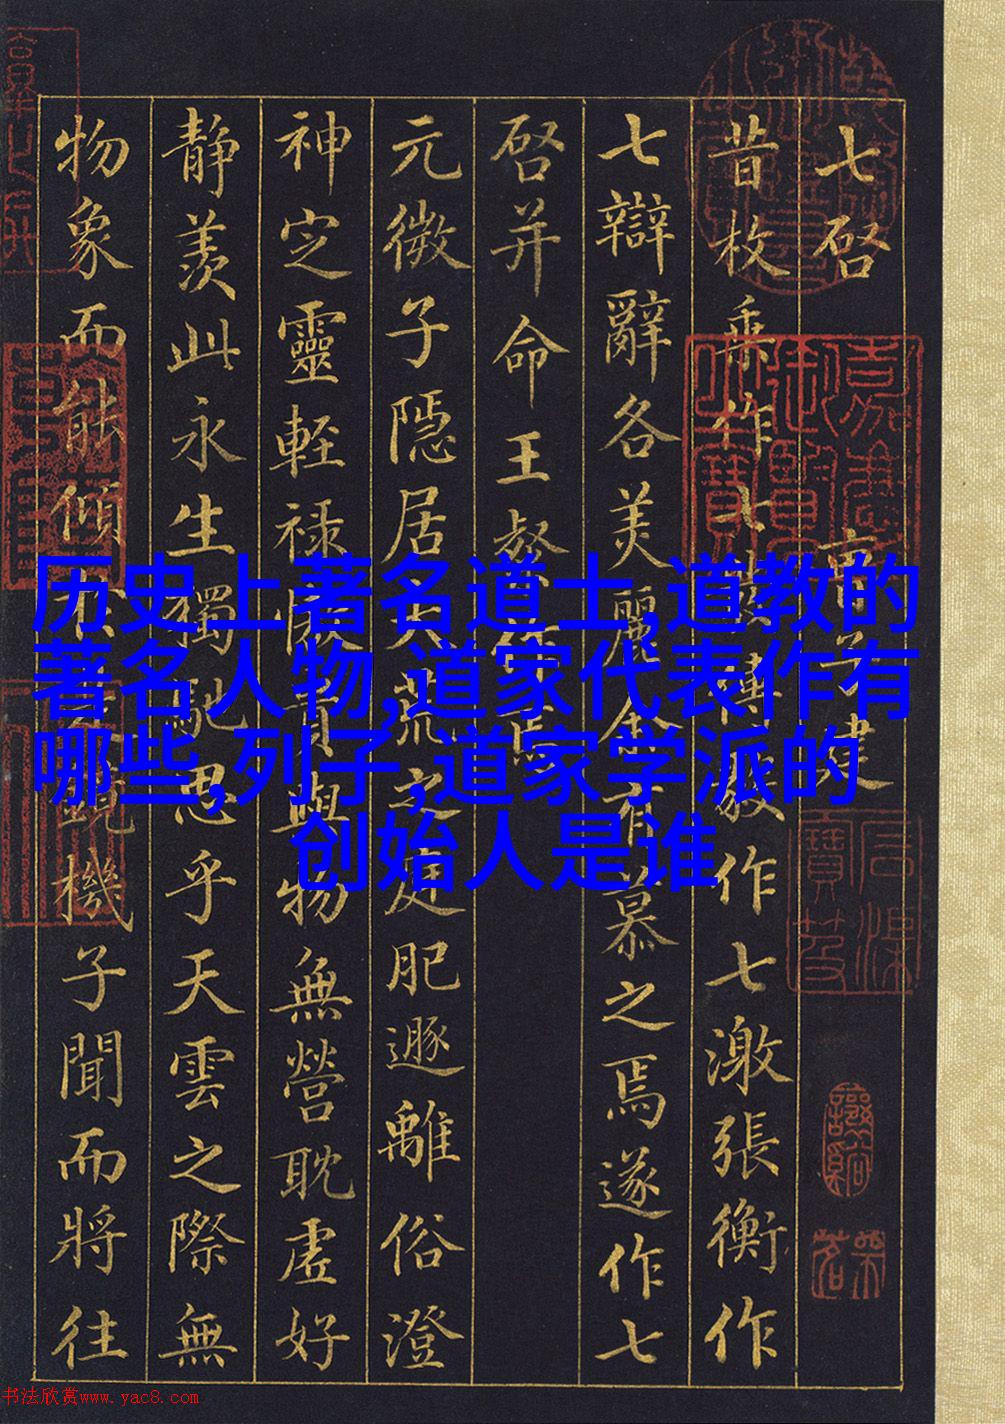 七啓 曹子建
昔枚乘作七發傅毅作七激張衡作
七辯辭各美麗余有慕之焉遂作七
啓并命王粲作焉
元微子隱居大荒之庭肥遯離俗澄
神定靈輕祿傲貴與物無營耽虛好
靜羨此永生獨馳思乎天雲之際無
物象而能傾於是鏡機子聞而將往
历史上著名道士,道教的
著名人物,道家代表作有
哪些,列子,道家学派的
创始人是谁
嘉慶御覽之寶
书法欣赏www.yac8.com